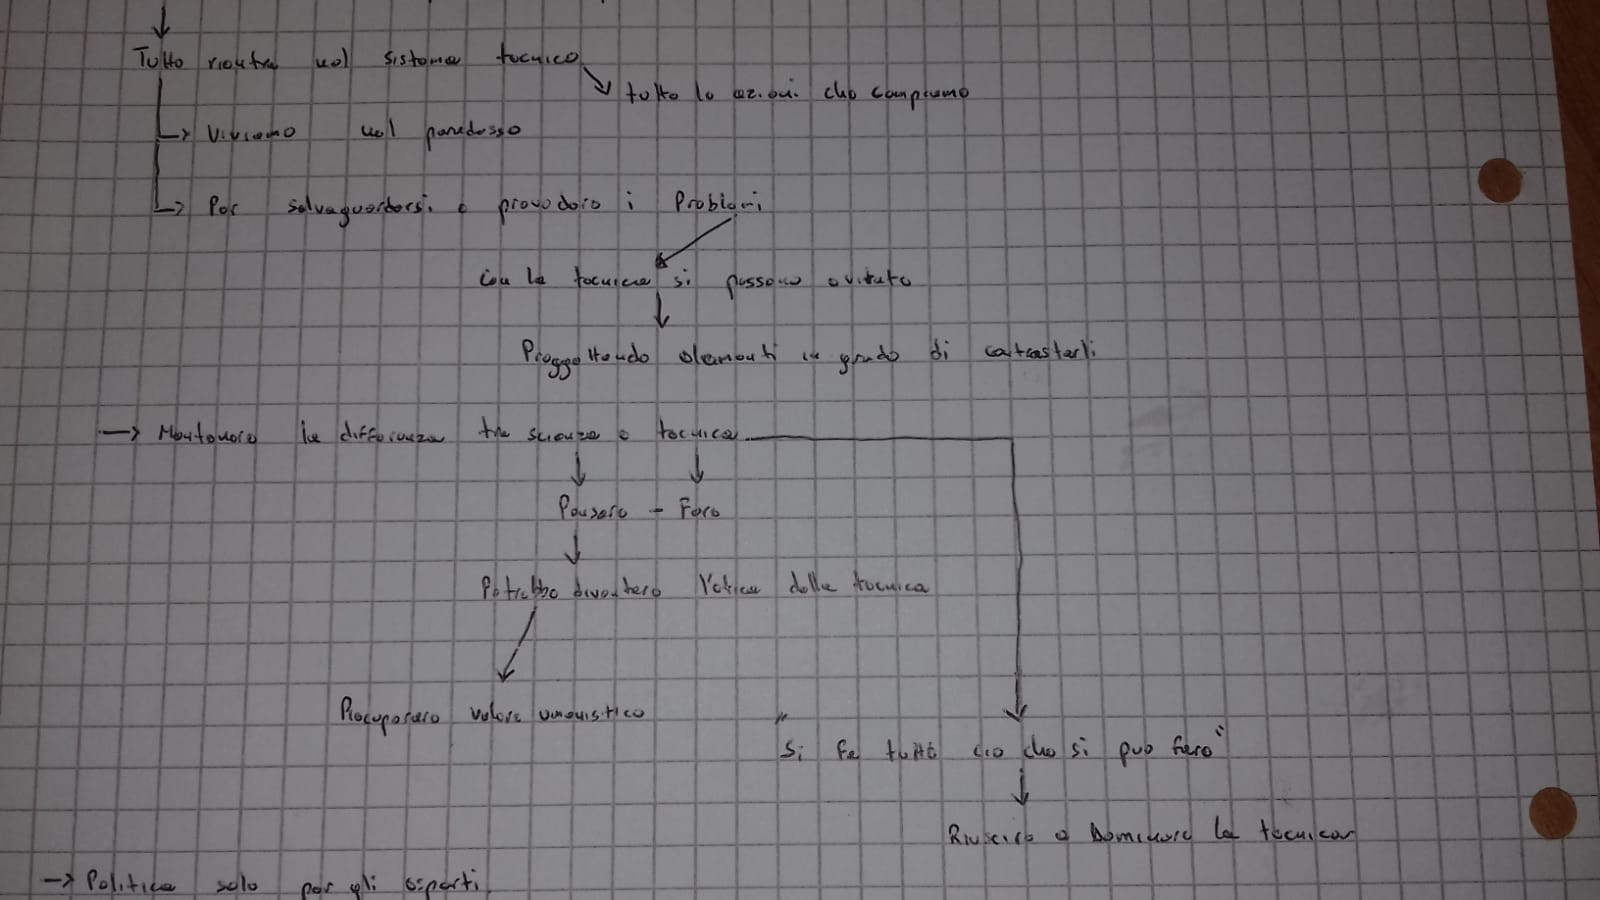 Tutto rientra nel sistema tecnico
tutte le azioni che compiamo
Viviamo nel paradosso
Per salvaguardarsi e prevedere i Problemi
Con la tecnica si possono evitate
Proggettando elementi in grado di contrastarli
Mantenere la differenza tra scienza e tecnica
Pensare - Fare
Potrebbe diventare l'etica della tecnica
Recuperare valore umanistico
"Si fa tutto ciò che si può fare"
Riuscire a Dominare la tecnica
Politica solo per gli esperti